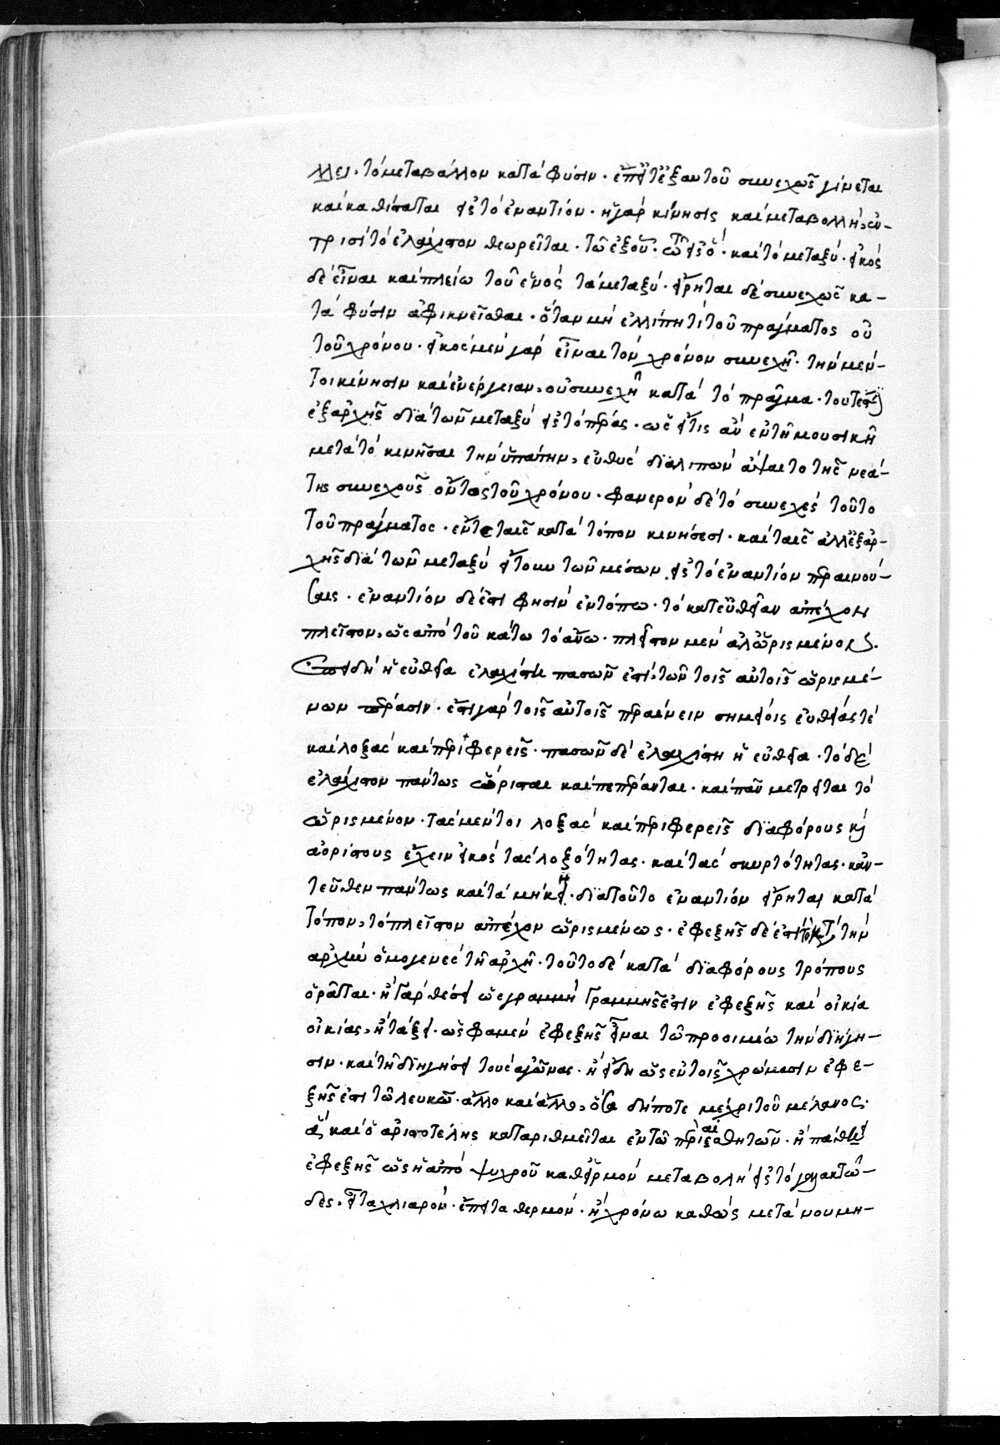 λλει· τὸ μεταβάλλον κατὰ φύσιν· ἐπεὶ τὲ ἐξ αὐτοῦ συνεχῶς γίνεται
καὶ καθίσταται εἰς τὸ ἐναντίον· ἡ γὰρ κίνησις καὶ μεταβολλὴ, ἐν
τρισὶ τὸ ἐλάχιστον θεωρεῖται· τῶ ἐξ οὗ· τῶ εἰς ὃ· καὶ τὸ μεταξύ· εἰκὸς
δὲ εἶναι καὶ πλείω τοῦ ἑνὸς τὰ μεταξύ· εἴρηται δὲ συνεχῶς κα-
τὰ φύσιν ἀφικνεῖσθαι· ὅταν μὴ ἐλλίπῃ τὶ τοῦ πράγματος οὐ
τοῦ χρόνου· εἰκὸς μὲν γὰρ εἶναι τὸν χρόνον συνεχῆ· τὴν μέν-
τοι κίνησιν καὶ ἐνέργειαν, οὐ συνεχῆ κατὰ τὸ πρᾶγμα· τουτέστι
ἐξ ἀρχῆς διὰ τῶν μεταξὺ εἰς τὸ πέρας· ὡς εἴ τις ἂν ἐν τῇ μουσικῇ
μετὰ τὸ κινῆσαι τὴν ὑπάτην, εὐθὺς διαλιπὼν ἅψαιτο τῆς νεά-
της συνεχοῦς ὄντος τοῦ χρόνου· φανερὸν δὲ τὸ συνεχὲς τοῦτο
τοῦ πράγματος· ἔν τε ταῖς κατὰ τόπον κινήσεσι· καὶ ταῖς ἄλλ ἐξ ἀρ-
χῆς διὰ τῶν μεταξὺ ἤτοι τῶν μέσων εἰς τὸ ἐναντίον περαινού-
σαις· ἐναντίον δέ ἐστι φησὶν ἐν τόπω· τὸ κατ' εὐθεῖαν ἀπέχον
πλεῖστον, ὡς ἀπὸ τοῦ κάτω τὸ ἄνω· πλεῖστον μὲν ἀλλ' ὡρισμένον.
ἐπειδὴ ἡ εὐθεῖα ἐλαχίστη πασῶν ἐστὶ τῶν τοῖς αὐτοῖς ὡρισμέ-
νων πέρασιν· ἔστι γὰρ τοῖς αὐτοῖς περαίνειν σημείοις εὐθείας τὲ
καὶ λοξὰς καὶ περιφερεῖς· πασῶν δὲ ἐλαχίστη ἡ εὐθεῖα· τὸ δὲ
ἐλάχιστον πάντως ὥρισται καὶ πεπέρανται· καὶ πᾶν μετρεῖται τὸ
ὡρισμένον· τὰς μέντοι λοξὰς καὶ περιφερεῖς διαφόρους καὶ
ἀορίστους ἔχειν εἰκὸς τὰς λοξότητας· καὶ τὰς σκυρτότητας· κἀν-
τεῦθεν πάντως καὶ τὰ μήκη· διὰ τοῦτο ἐναντίον εἴρηται κατὰ
τόπον, τὸ πλεῖστον ἀπέχον ὡρισμένως· ἐφεξῆς δέ ἐστι τὸ κατὰ τὴν
ἀρχὴν ὁμογενὲς τῇ ἀρχῇ· τοῦτο δὲ κατὰ διαφόρους τρόπους
ὁρᾶται· ἢ γὰρ θέσει ὡς γραμμὴ γραμμῆς ἐστιν ἐφεξῆς καὶ οἰκία
οἰκίας, ἢ τάξει· ὥς φαμεν ἐφεξῆς εἶναι τῶ προοιμίω τὴν διήγη-
σιν· καὶ τῇ διηγήσει τοὺς ἀγῶνας· ἢ εἴδει ὡς ἐν τοῖς χρώμασιν ἐφε-
ξῆς ἐστι τῶ λευκῶ· ἄλλο καὶ ἄλλο, ὅσα δήποτε μέχρι τοῦ μέλανος·
ἃ καὶ ὁ ἀριστοτέλης καταριθμεῖται ἐν τῶ περὶ αἰσθητῶν· ἢ πάθει
ἐφεξῆς ὡς ἡ ἀπὸ ψυχροῦ κα θερμὸν μεταβολὴ εἰς τὸ γαλακτῶ-
δες· εἶτα χλιαρὸν· ἔπειτα θερμόν· ἢ χρόνω καθὼς μετὰ νουμη-